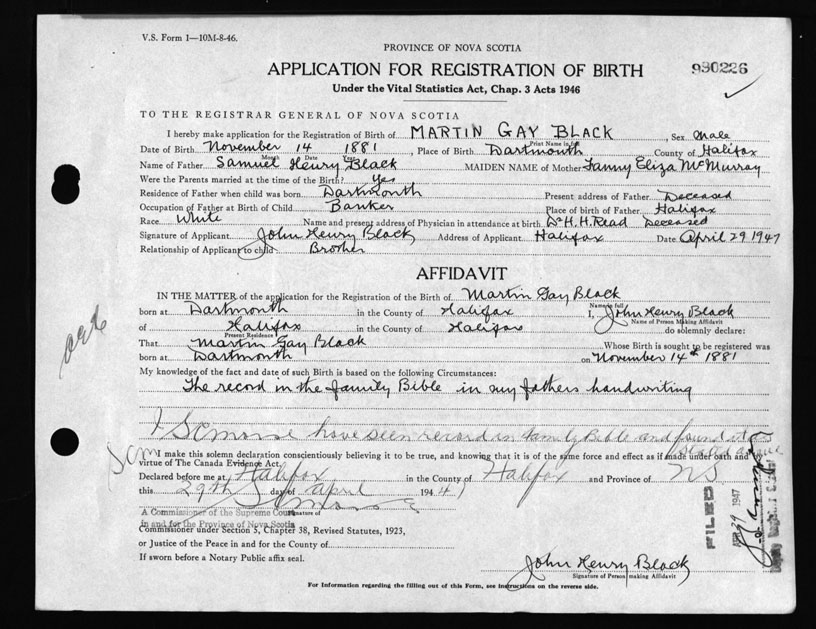 V.S. Form 1—10M-8-46.
PROVINCE OF NOVA SCOTIA
APPLICATION FOR REGISTRATION OF BIRTH
980226
Under the Vital Statistics Act, Chap. 3 Acts 1946
TO THE REGISTRAR GENERAL OF NOVA SCOTIA
I hereby make application for the Registration of Birth of MARTIN GAY BLACK, Sex Male
Print Name in full
Date of Birth November 14 1881, Place of Birth Dartmouth County of Halifax
Month Date Year
Name of Father Samuel Henry Black MAIDEN NAME of Mother Fanny Eliza McMurray
Were the Parents married at the time of the Birth? Yes
Residence of Father when child was born Dartmouth Present address of Father Deceased
Occupation of Father at Birth of Child Banker Place of birth of Father Halifax
Race White Name and present address of Physician in attendance at birth Dr H. H. Read Deceased
Signature of Applicant John Henry Black Address of Applicant Halifax Date April 29 1947
Relationship of Applicant to child Brother
AFFIDAVIT
IN THE MATTER of the application for the Registration of the Birth of Martin Gay Black
born at Dartmouth in the County of Halifax I, John Henry Black
Name in full
Name of Person Making Affidavit
of Halifax in the County of Halifax do solemnly declare:
Present Residence
That Martin Gay Black Whose Birth is sought to be registered was
born at Dartmouth on November 14th 1881
My knowledge of the fact and date of such Birth is based on the following Circumstances:
The record in the family Bible in my fathers handwriting
I SCMorse have seen record in family Bible and found it as
I make this solemn declaration conscientiously believing it to be true, and knowing that it is of the same force and effect as if made under oath and by
virtue of The Canada Evidence Act.
Declared before me at Halifax in the County of Halifax and Province of NS
this 29th day of April 1947
A Commissioner of the Supreme Court
Signature of
in and for the Province of Nova Scotia
Commissioner under Section 5, Chapter 38, Revised Statutes, 1923,
or Justice of the Peace in and for the County of
If sworn before a Notary Public affix seal.
John Henry Black
Signature of Person making Affidavit
For Information regarding the filling out of this Form, see instructions on the reverse side.
FILED
APR 29 1947